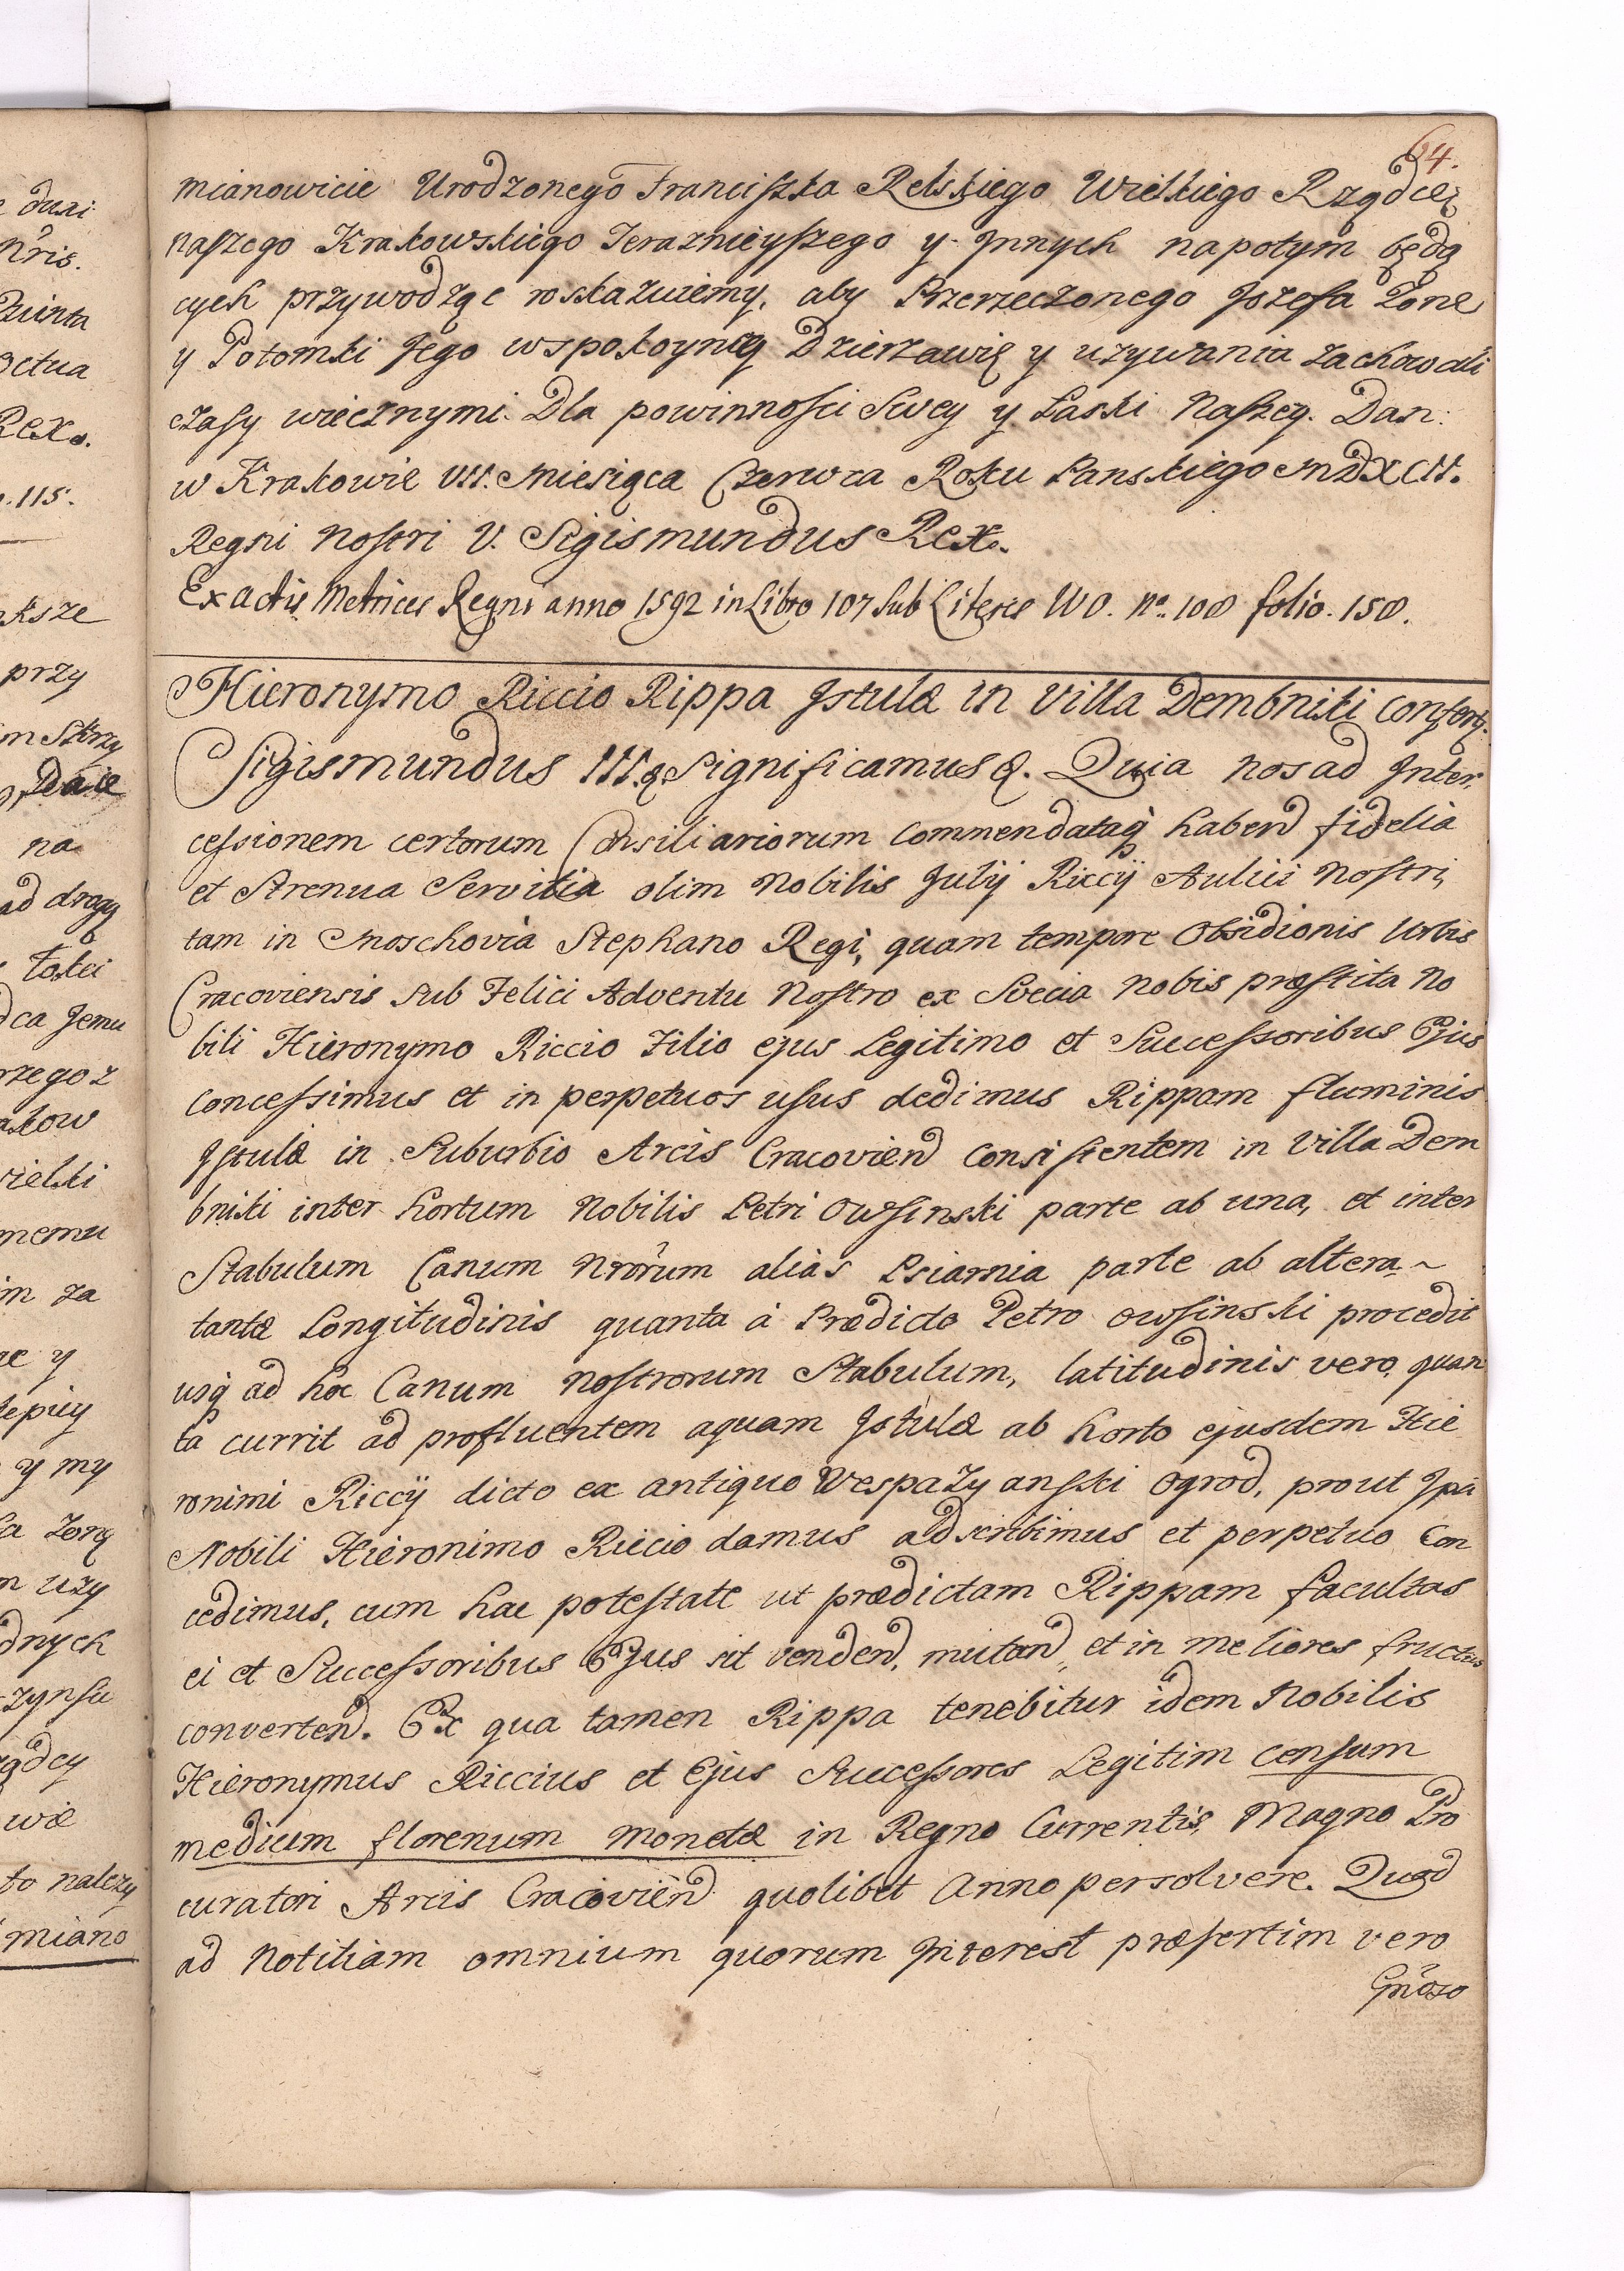 64.
mianowicie Urodzonego Franciszka Relskiego Wielkiego Rządcę
naszego Krakowskiego Teraznieyszego y Jnnych napotym będą
cych przywodząc roskazuiemy, aby Przerzeczonego Jozefa Zonę
y Potomki Jego w spokoyney Dzierzawie y uzywania zachowali
czasy wiecznymi. Dla powinnosci Swey y Łaski Naszey. Dan:
w Krakowie VII. Miesiąca Czerwca Roku Panskiego MDXCII.
Regni Nostri V. Sigismundus Rex.
Ex actis Metrices Regni anno 1592 in Libro 107 Sub Literis WO. No. 100 folio. 150.
Hieronymo Riccio Rippa Jstulæ in Villa Dembniki confert.
Sigismundus III. &. Significamus &. Quia nos ad Jnter
cessionem certorum Consiliariorum commendataq haben fidelia
et Strenua Servitia olim Nobilis Julij Riccij Aulici Nostri,
tam in Moschovia Stephano Regi, quam tempore Obsidionis Urbis
Cracoviensis sub Felici Adventu Nostro ex Svecia nobis præstita No
bili Hieronymo Riccio Filio ejus Legitimo et Successoribus Ejus
concessimus et in perpetuos usus dedimus Rippam fluminis
Jstulæ in Suburbio Arcis Cracovien consistentem in Villa Dem
bniki inter hortum Nobilis Petri Owsinski parte ab una, et inter
Stabulum Canum Nrorum alias Psiarnia parte ab altera ~
tantæ Longitudinis quanta à Prædicto Petro Owsinski procedit
usq ad hoc Canum nostrorum Stabulum, latitudinis vero, quan
ta currit ad profluentem aquam Jstulæ ab horto ejusdem Hie
ronimi Riccij dicto ex antiquo Wespazyanski Ogrod, prout Jpsi
Nobili Hieronimo Riccio damus adscribimus et perpetuo con
cedimus, cum hac potestate ut prædictam Rippam facultas
ei et Successoribus Ejus sit venden, mutan, et in meliores fructus
converten. Ex qua tamen Rippa tenebitur idem Nobilis
Hieronymus Riccius et Ejus Successores Legitim censum
medium florenum monetæ in Regno Currentis, Magno Pro
curatori Arcis Cracovien quolibet Anno persolvere. Quod
ad Notitiam omnium quorum Jnterest præsertim vero
Gnoso